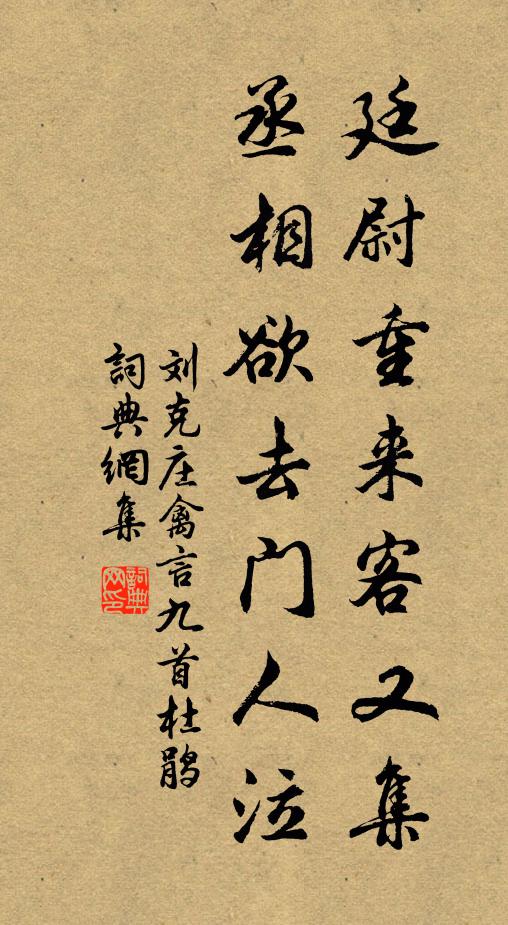 廷尉重来客又集
丞相欲去门人泣
刘克庄禽言九首杜鹃
詞典網集
詞典网印